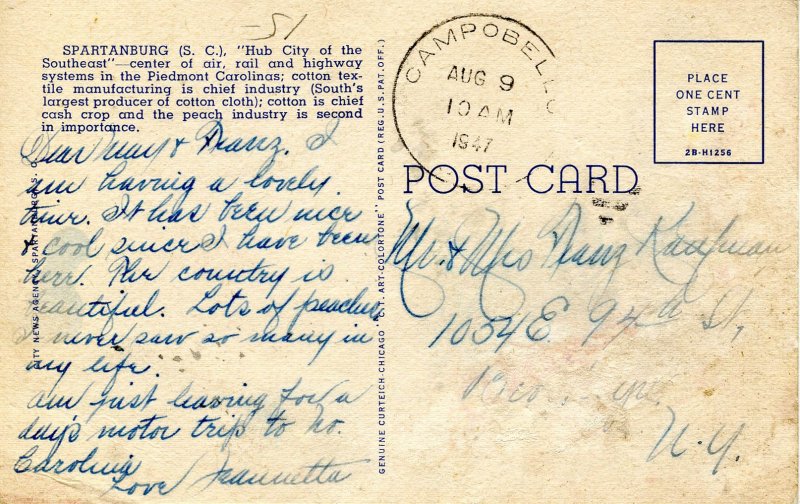 -51
SPARTANBURG (S. C.), "Hub City of the
Southeast"—center of air, rail and highway
systems in the Piedmont Carolinas; cotton tex-
tile manufacturing is chief industry (South's
largest producer of cotton cloth); cotton is chief
cash crop and the peach industry is second
in importance.
Dear May & Franz. I
am having a lovely
time. It has been nice
& cool since I have been
here. The country is
beautiful. Lots of peaches
I never saw so many in
my life.
am just leaving for a
day's motor trip to No.
Carolina
Love Jeannetta
CITY NEWS AGENCY, SPARTANBURG, S.
GENUINE CURTEICH-CHICAGO "C.T. ART-COLORTONE" POST CARD (REG. U.S. PAT. OFF.)
CAMPOBELLO
AUG 9
10 AM
1947
PLACE
ONE CENT
STAMP
HERE
2B-H1256
POST CARD
Mr. & Mrs Franz Kaufman
1054 E. 94th St,
N.Y.